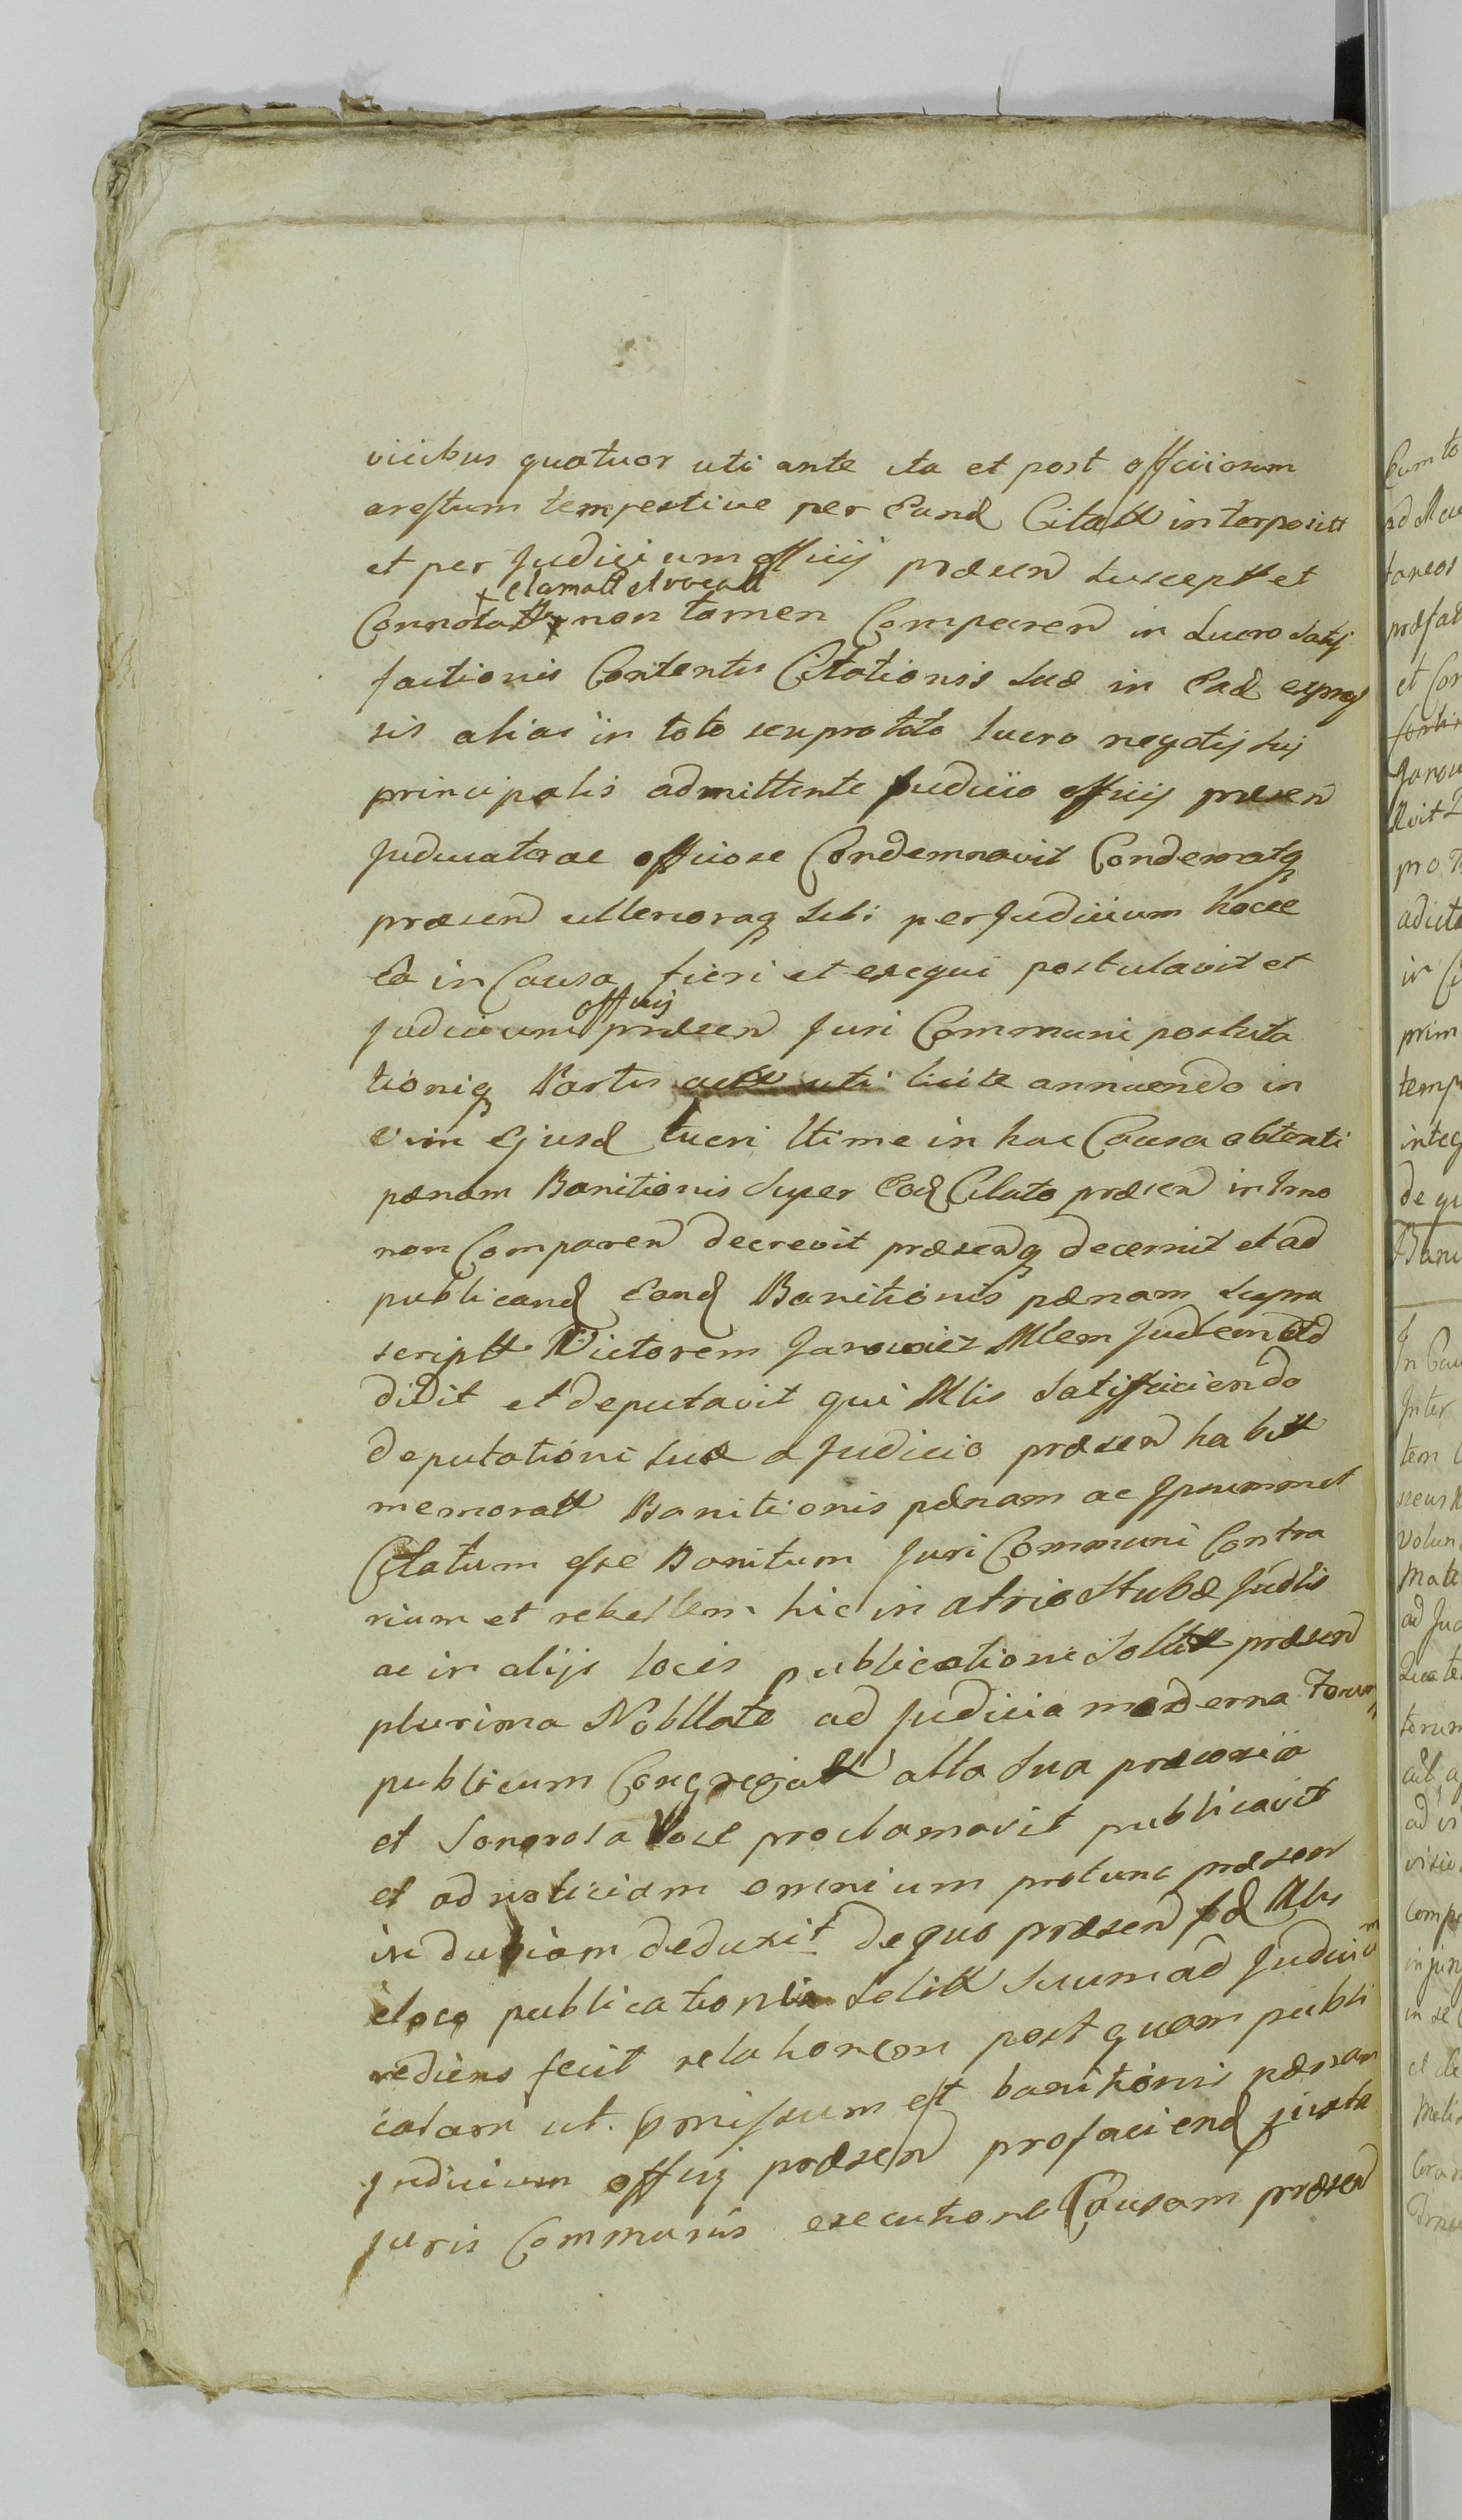 vicibus quatuor uti ante ita et post officiosum
arestum tempestive per Eund Citatt interpositt
et per Judicium officij præsen susceptt et
clamatt et vocatt
Connotatt non tamen Comparen in Lucro satis
factionis Contentis Citationis suæ in Ead expres
sis alias in toto seu pro toto lucro negotij sui
principalis admittente Judicio officij præsen
Judicatorae officiose Condemnavit Condemnatq
præsen ulterioraq sibi per Judicium hocce
Ea in Causa fieri et exequi postulavit et
officij
Judicium præsen Juri Communi postula
tioniq Partis licite annuendo in
vim Ejusd lucri ltime in hac Causa obtenti
pænam Banitionis super Eod Citato præsen in trno
non Comparen decrevit præsenq decernit et ad
publicand Eand Banitionis pænam supra
scriptt Victorem Janowicz Mlem Judlem ad
didit et deputavit qui Mlis satisfaciendo
deputationi suæ a Judicio præsen habitt
memoratt Banitionis pænam ac Ipsummet
Citatum esse Banitum Juri Communi Contra
rium et rebellem hic in atrio Stubæ Judlis
ac in alijs locis publicationi solitt præsen
plurima Nobllate ad Judicia moderna Forum
publicum Congregatt alta sua præconia
et Sonorosa Voce proclamavit publicavit
et ad noticiam omnium protunc præsen
deduxit de quo præsen Mlis
e loco publicationis solitt suum ad Judicium
rediens fecit relationem post quam publi
catam ut pmissum est banitionis pænam
Judicium officij præsen pro faciend juxta
Juris Communis executione Causam præsen